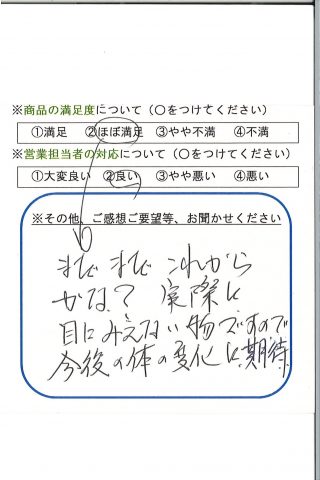 ※商品の満足度について（○をつけてください）
①満足　②ほぼ満足　③やや不満　④不満
※営業担当者の対応について（○をつけてください）
①大変良い　②良い　③やや悪い　④悪い
※その他、ご感想ご要望等、お聞かせください
まだ まだ これから
かな？ 実際に
目にみえない物ですので
今後の体の変化に期待